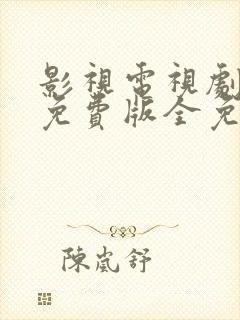 影視電視劇
免費版全免
陳嵐舒